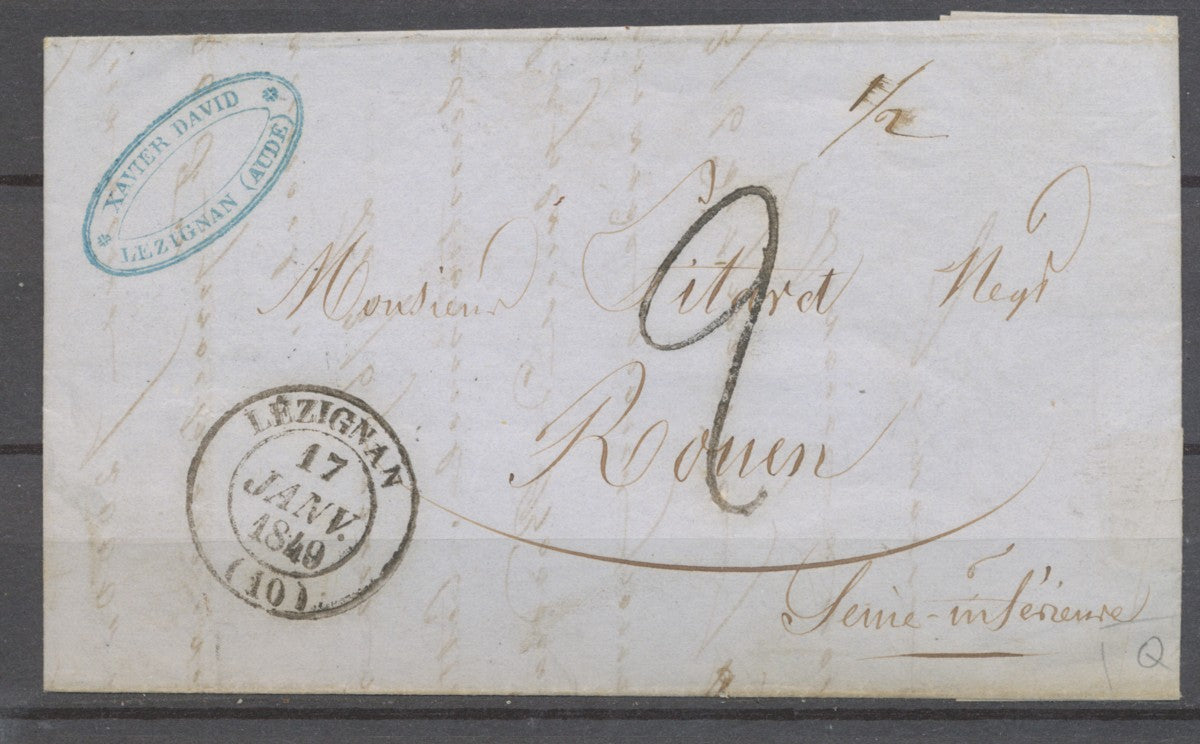 XAVIER DAVID
LEZIGNAN (AUDE)
1/2
Monsieur Sitard Negt
2
Rouen
Seine-inférieure
LÉZIGNAN
17
JANV.
1849
(10)
Q